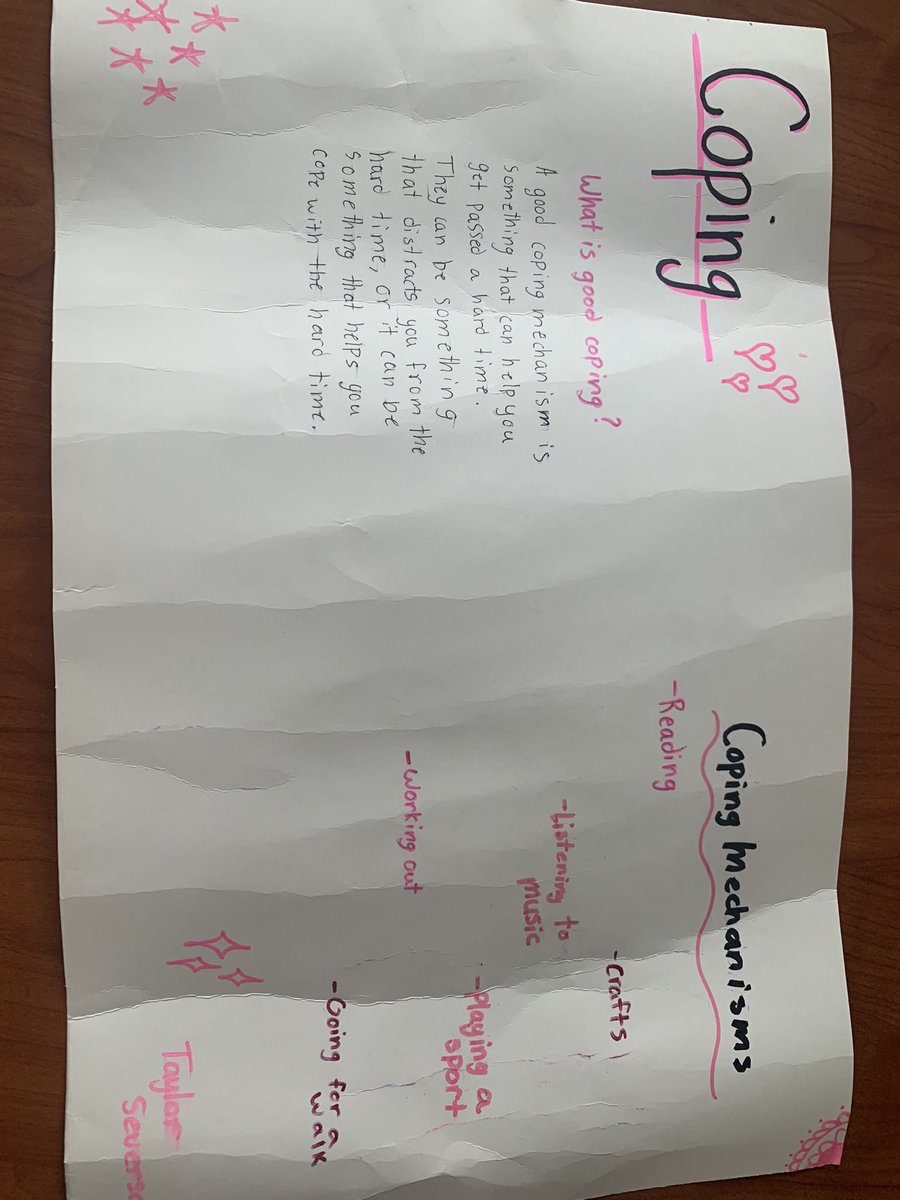 Coping
What is good coping?
A good coping mechanism is
something that can help you
get passed a hard time.
They can be something
that distracts you from the
hard time, or it can be
something that helps you
cope with the hard time.
Coping Mechanisms
-Reading
-Crafts
-Listening to
music
-Playing a
sport
-Working out
-Going for a
walk
Taylor